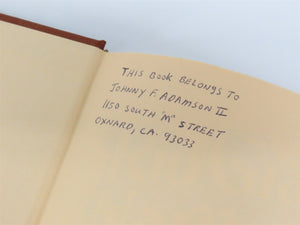 THIS BOOK BELONGS TO
JOHNNY F. ADAMSON II
1150 SOUTH "M" STREET
OXNARD, CA. 93033